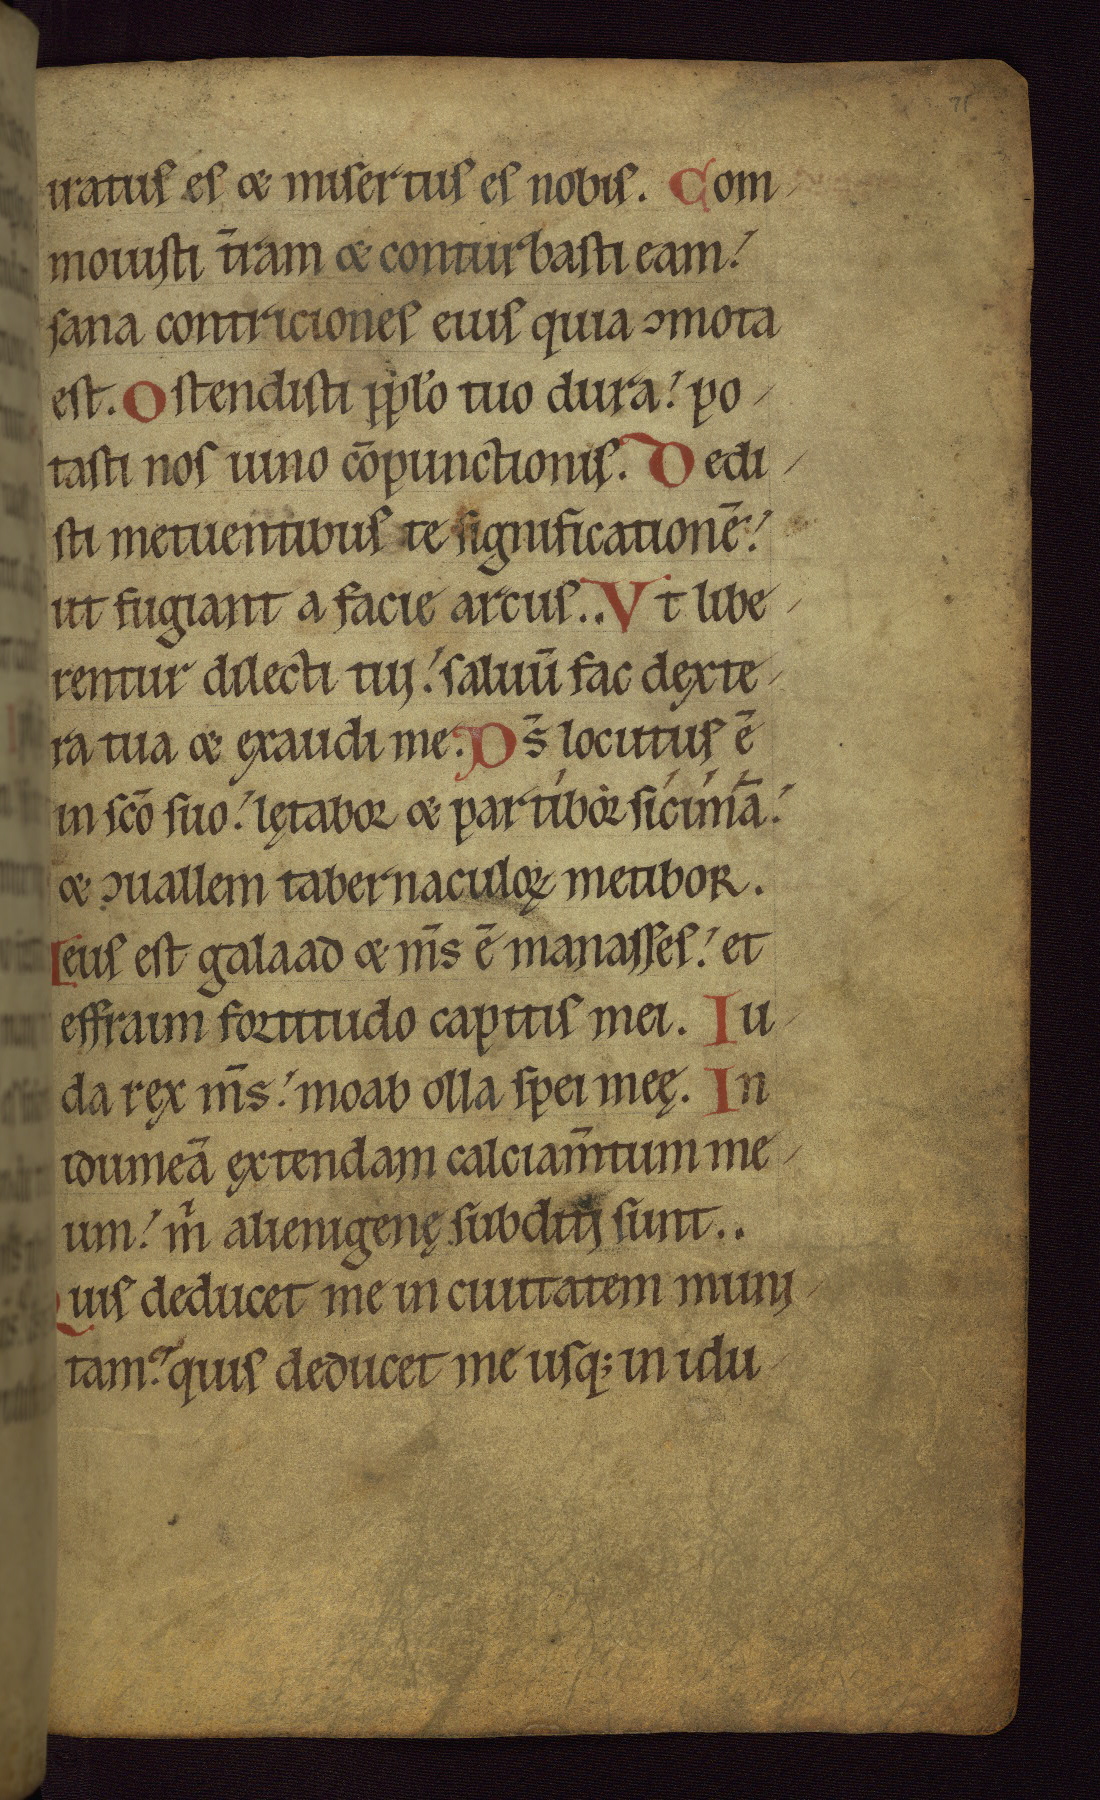 71
iratus es & misertus es nobis. Com
mouisti t̄ram & conturbasti eam!
sana contriciones eius quia ɔmota
est. Ostendisti pp̄lo tuo dura! po
tasti nos uino cōpunctionis. Dedi
sti metuentibus te significationē!
ut fugiant a facie arcus.. Vt libe
rentur dilecti tui! saluū fac dexte
ra tua & exaudi me. Ds̄ locutus ē
in scō suo! lętabor & partibor sicimā!
& ɔuallem tabernaculoꝝ metibor.
Meus est galaad & m̄s ē manasses! et
effraim fortitudo capitis mei. Iu
da rex m̄s! moab olla spei meę. In
idumeā extendam calciam̄tum me
um! m̄ alienigenę subditi sunt..
Quis deducet me in ciuitatem muni
tam? quis deducet me usq; in idu